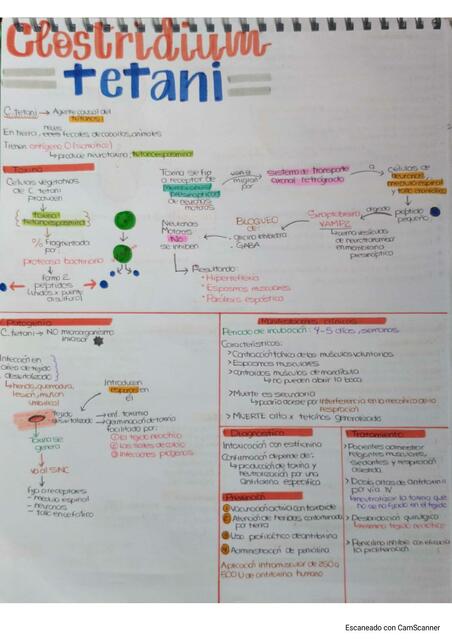 Clostridium
tetani
C. tetani → Agente causal del
tétanos
En tierra, heces fecales de caballos, animales
Tienen antígeno O (somático)
↳ produce neurotoxina, tetanoespasmina
Toxina
Células vegetativas
de C. tetani
Producen
toxina
tetanoespasmina
fragmentada
por
proteasa bacteriana
forma 2
péptidos
(unidos x puente
disulfuro)
Toxina se fija
a receptor de
membranas
presinápticas
de neuronas
motoras
migran
por
sistema de transporte
axonal retrógrado
a
Células de
neuronas
médula espinal
y tallo cerebral
degrada
péptido
pequeño
Sinaptobrevina
VAMP2
vesículas
de neurotransmisor
en membrana
presináptica
BLOQUEO
de:
- glicina inhibidora
- GABA
Neuronas
Motoras
NO
se inhiben
Resultando
• Hiperreflexia
• Espasmos musculares
• Parálisis espástica
Patogenia
C. tetani → NO microorganismo
invasor
Infección en
área de tejido
desvitalizado
↳ herida, quemadura,
lesión, muñón
umbilical
Introducen
esporas en
él
Tejido
desvitalizado
germinación de toxina
facilitado por:
① El tejido necrótico
② Las sales de calcio
③ Infecciones piógenas
Toxina se
genera
va al SNC
fija a receptores
- médula espinal
- neuronas
- tallo encefálico
Manifestaciones clínicas
Periodo de incubación: 4-5 días, semanas
Características:
> Contracción tónica de los músculos voluntarios
> Espasmos musculares
> músculos de mandíbula
↳ no pueden abrir la boca
> Muerte es secundaria
↳ Interferencia en la mecánica de la
respiración
> MUERTE alta x tétanos generalizado
Diagnóstico
Intoxicación con estricnina
Confirmación depende de:
↳ producción de toxina y
neutralización por una
antitoxina específica
Prevención
① Vacunación activa con toxoide
② Atención de heridas contaminadas
por tierra
③ Uso profiláctico de antitoxina
④ Administración de penicilina
Aplicación intramuscular de 250 a
500 U de antitoxina humana
Tratamiento
> Pacientes administrar
relajantes musculares,
sedantes y respiración
asistida
> Dosis altas de antitoxina
por vía IV
↳ neutralizar la toxina que
no se ha fijado en el tejido
> Desbridación quirúrgica
tejido necrótico
> Penicilina inhibe con eficacia
la proliferación
Escaneado con CamScanner